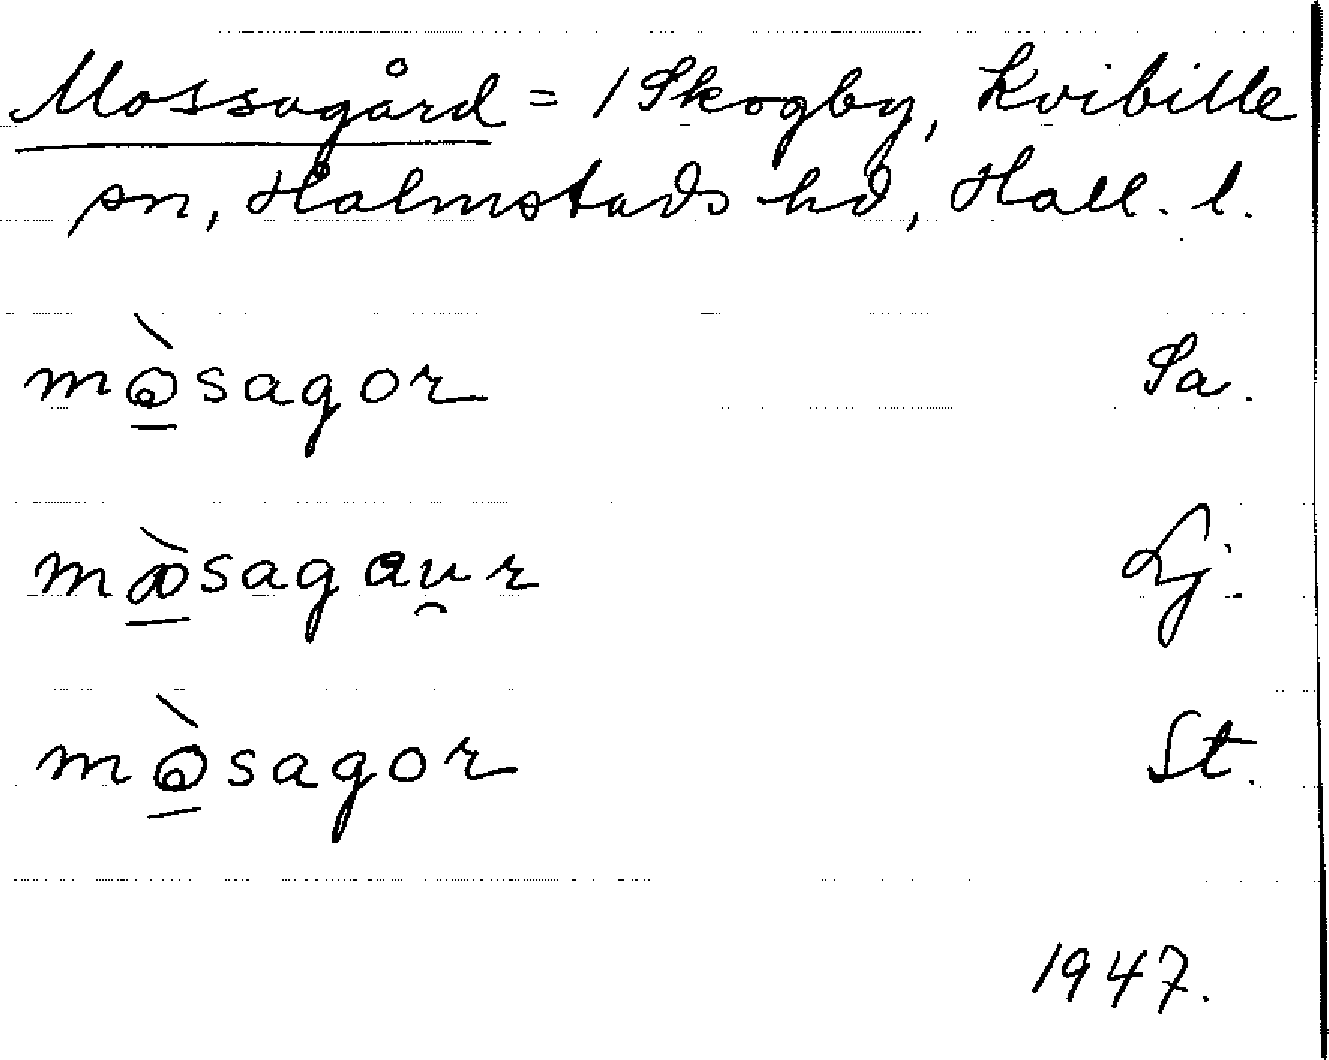 Mossagård = 1 Skogby, Kvibille
sn, Halmstads hd, Hall. l.
mòsagor Sa.
mòsagaur Lj.
mòsagor St.
1947.